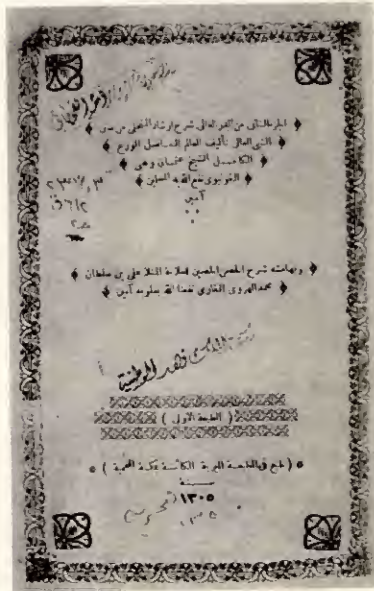 الجزء الثاني من الدر الغالي شرح ارشاد المتعلى من هدى
النبي العالي تأليف العالم الفاضل الورع
الكامل الشيخ عثمان وهبي
القونيوي نفع الله به المسلمين
آمين
وبهامشه شرح الحصن الحصين للعلامة المنلا علي بن سلطان
محمد الهروي القاري نفعنا الله بعلومه آمين
مكتبة الملك فهد الوطنية
( الطبعة الاولى )
( طبع في المطبعة الميرية الكائنة بمكة المحمية )
سنة
١٣٠٥